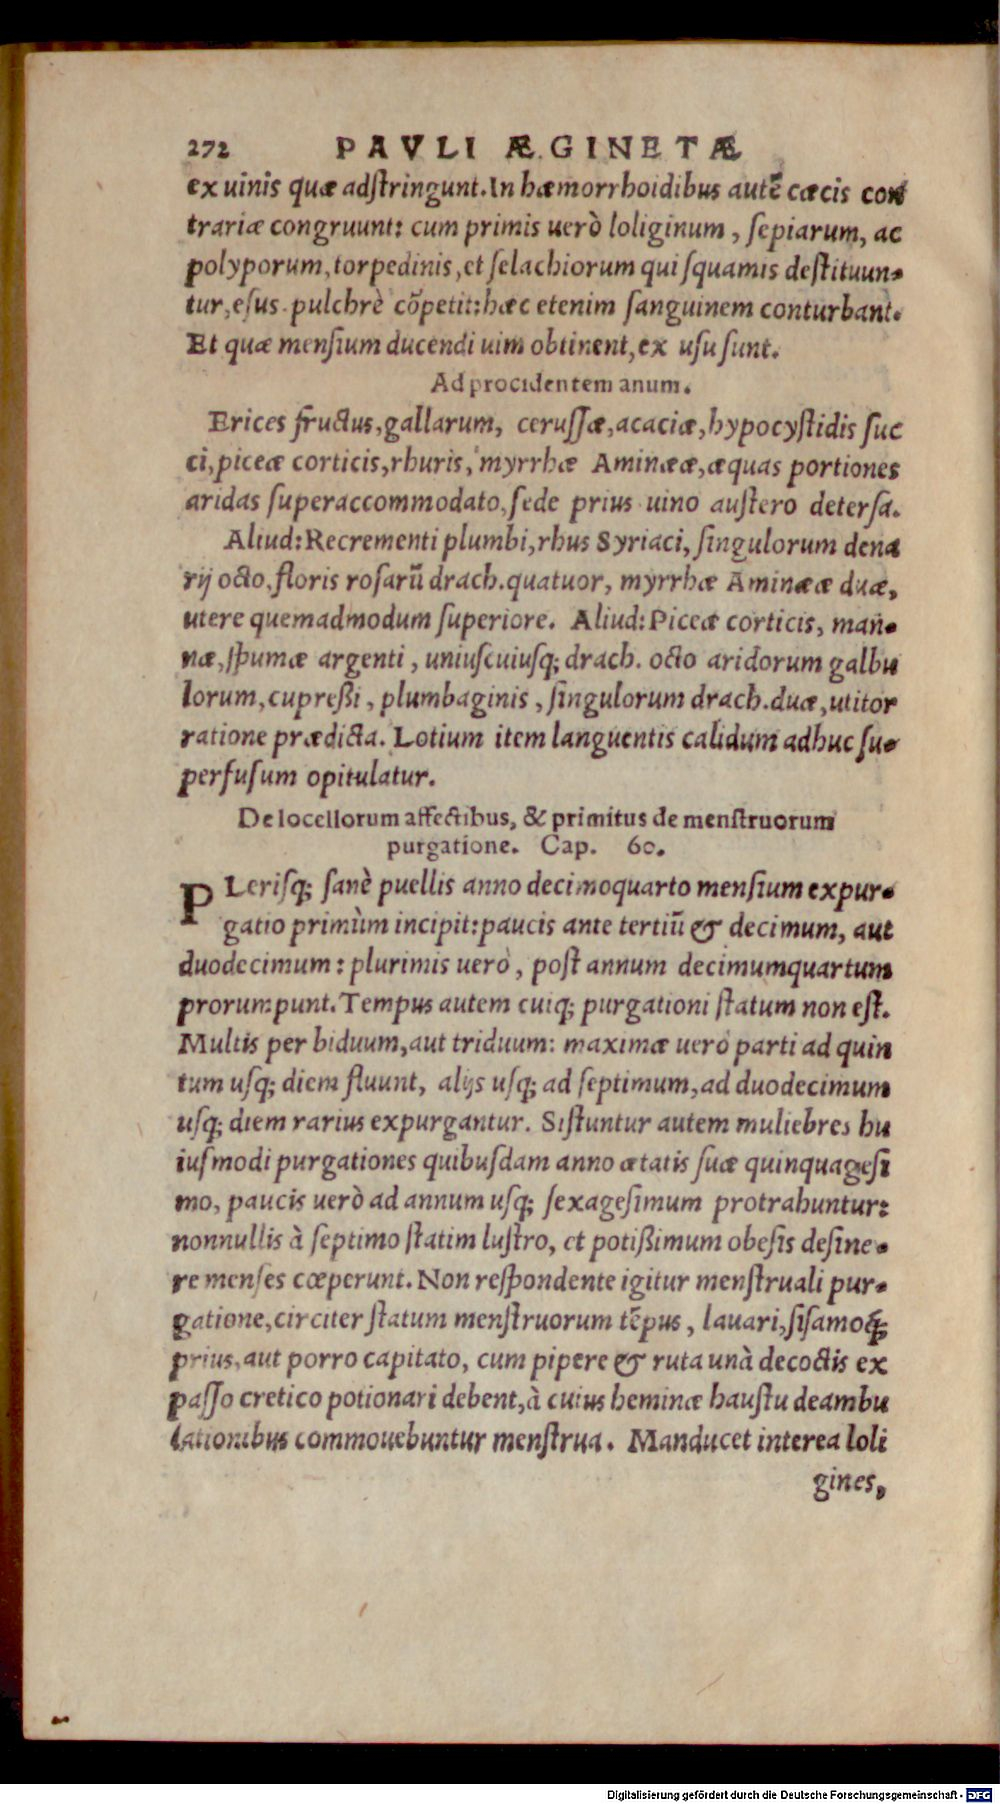 272 PAVLI ÆGINETÆ
ex uinis quæ adſtringunt. In hæmorrhoidibus autē cæcis con
trariæ congruunt: cum primis uerò loliginum, ſepiarum, ac
polyporum, torpedinis, et ſelachiorum qui ſquamis deſtituun-
tur, eſus pulchrè cōpetit: hæc etenim ſanguinem conturbant.
Et quæ menſium ducendi uim obtinent, ex uſu ſunt.
Ad procidentem anum.
Erices fructus, gallarum, ceruſſæ, acaciæ, hypocyſtidis ſuc
ci, piceæ corticis, rhuris, myrrhæ Amineæ, æquas portiones
aridas ſuperaccommodato, ſede prius uino auſtero deterſa.
Aliud: Recrementi plumbi, rhus Syriaci, ſingulorum dena
rij octo, floris roſarū drach. quatuor, myrrhæ Amineæ duæ,
utere quemadmodum ſuperiore. Aliud: Piceæ corticis, man-
næ, ſpumæ argenti, uniuſcuiuſq; drach. octo aridorum galbu
lorum, cupreßi, plumbaginis, ſingulorum drach. duæ, utitor
ratione prædicta. Lotium item languentis calidum adhuc ſu-
perfuſum opitulatur.
De locellorum affectibus, & primitus de menſtruorum
purgatione. Cap. 60.
PLeriſq; ſanè puellis anno decimoquarto menſium expur-
gatio primùm incipit: paucis ante tertiū & decimum, aut
duodecimum: plurimis uerò, poſt annum decimumquartum
prorumpunt. Tempus autem cuiq; purgationi ſtatum non eſt.
Multis per biduum, aut triduum: maximæ uerò parti ad quin
tum uſq; diem fluunt, alijs uſq; ad ſeptimum, ad duodecimum
uſq; diem rarius expurgantur. Siſtuntur autem muliebres hu
iuſmodi purgationes quibuſdam anno ætatis ſuæ quinquageſi
mo, paucis uerò ad annum uſq; ſexageſimum protrahuntur:
nonnullis à ſeptimo ſtatim luſtro, et potißimum obeſis deſine-
re menſes cœperunt. Non reſpondente igitur menſtruali pur-
gatione, circiter ſtatum menſtruorum tēpus, lauari, ſiſamoq́;
prius, aut porro capitato, cum pipere & ruta unà decoctis ex
paſſo cretico potionari debent, à cuius heminæ hauſtu deambu
lationibus commouebuntur menſtrua. Manducet interea loli
gines,
Digitalisierung gefördert durch die Deutsche Forschungsgemeinschaft - DFG